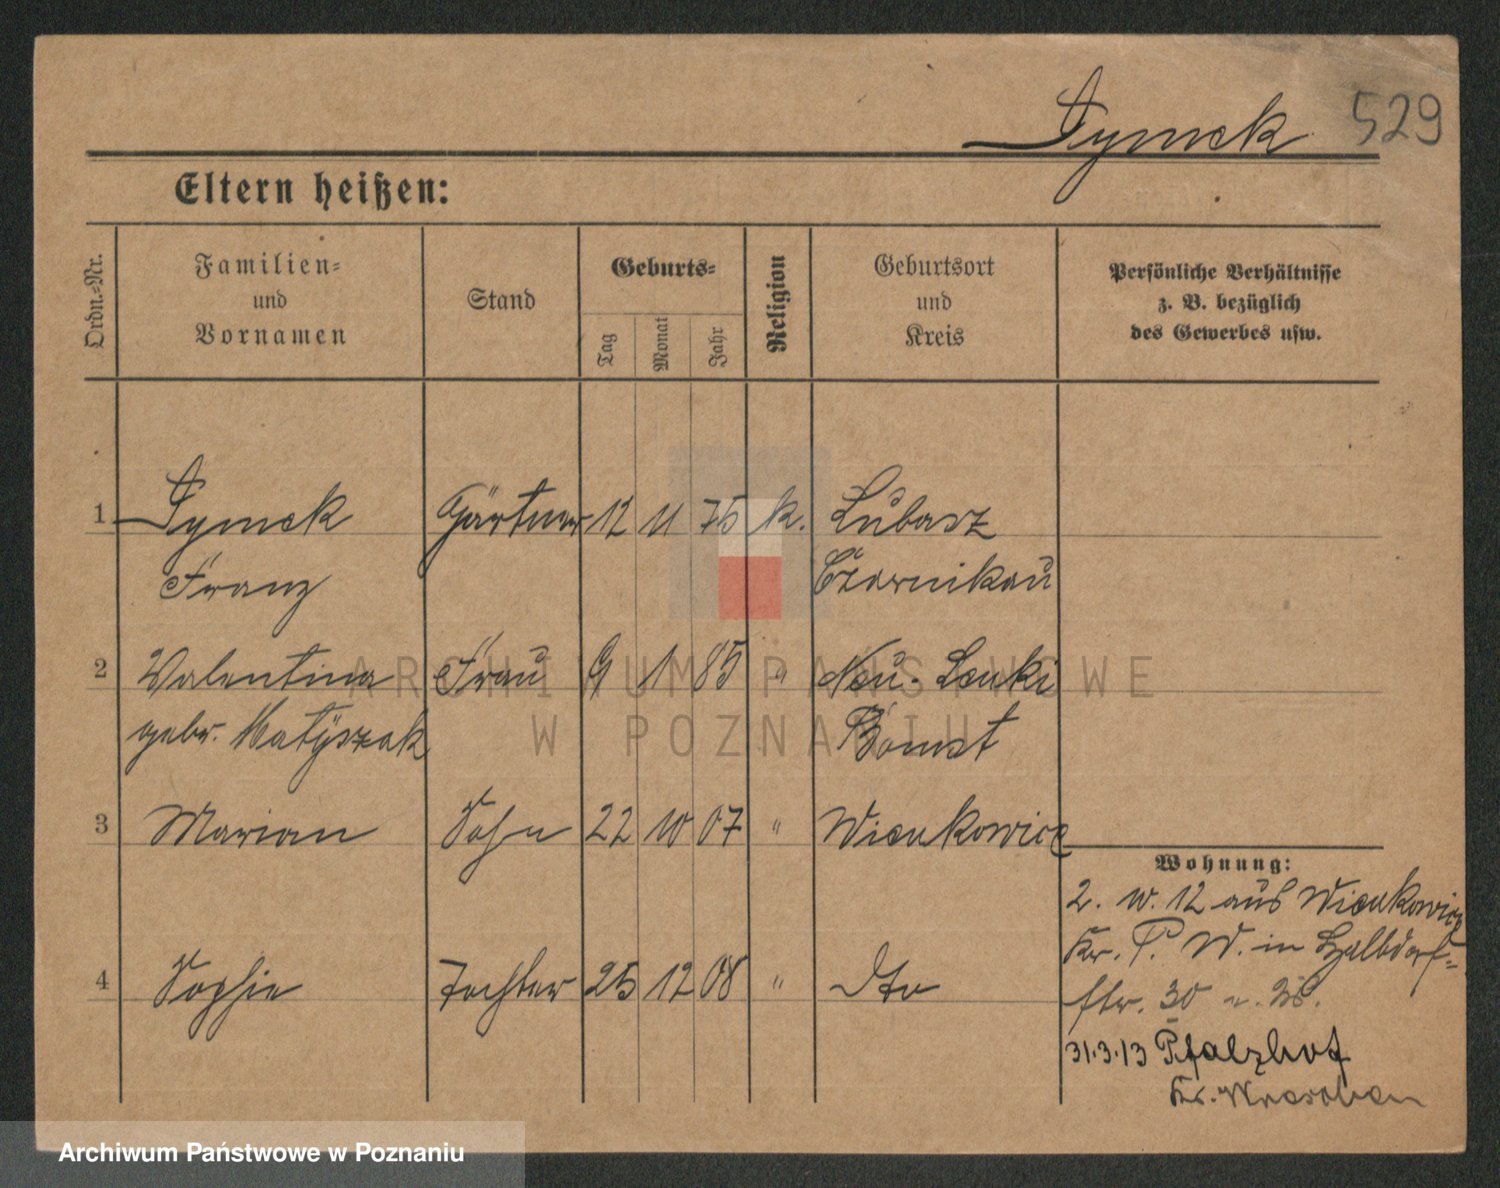 Symek 529
Eltern heißen:
Ordn.-Nr.
Familien-
und
Vornamen
Stand
Geburts-
Tag
Monat
Jahr
Religion
Geburtsort
und
Kreis
Persönliche Verhältnisse
z. B. bezüglich
des Gewerbes usw.
1 Symek Gärtner 12 11 75 k. Lubasz
Franz Czarnikau
2 Valentina Frau 9 1 85 " Neu-
geb. Matÿszak Bomst
3 Marian Sohn 22 10 07 "
4 Sophie Tochter 25 12 08 " Dto
Wohnung:
2. IV. 12 aus
Kr. P. W. in
str. 30
31.3.13 Pfalzhof
Kr.
ARCHIWUM PAŃSTWOWE
W POZNANIU
Archiwum Państwowe w Poznaniu